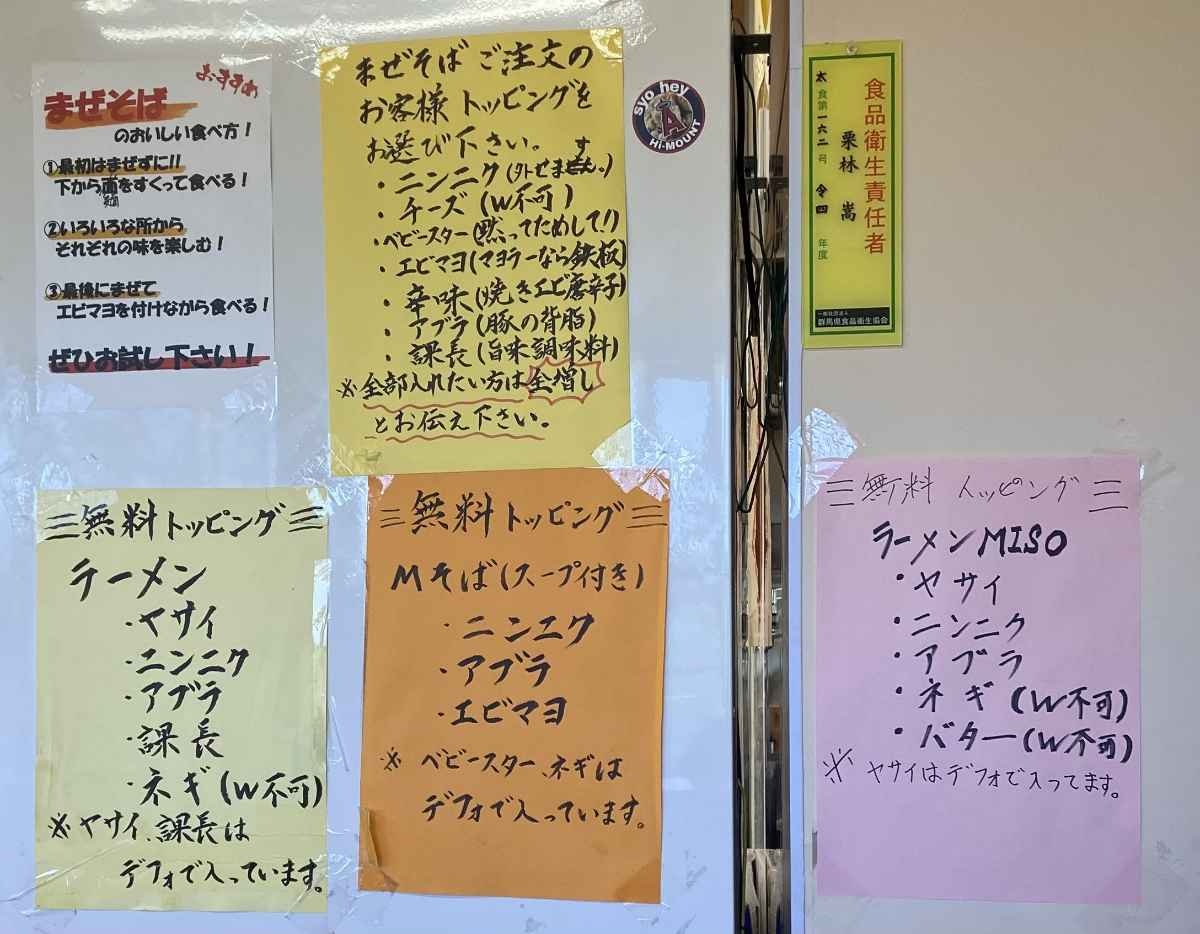 まぜそば
のおいしい食べ方！
①最初はまぜずに!!
下から麺をすくって食べる！
②いろいろな所から
それぞれの味を楽しむ！
③最後にまぜて
エビマヨを付けながら食べる！
ぜひお試し下さい！
まぜそばご注文の
お客様トッピングを
お選び下さい。
・ニンニク(外せます。)
・チーズ(W不可)
・ベビースター(黙ってためして!)
・エビマヨ(マヨラーなら鉄板)
・辛味(焼きエビ唐辛子)
・アブラ(豚の背脂)
・課長(旨味調味料)
※全部入れたい方は全増し
とお伝え下さい。
syo hey
A
Hi-MOUNT
食品衛生責任者
太食第一六二号
栗林 嵩
令四年度
一般社団法人
群馬県食品衛生協会
無料トッピング
ラーメン
・ヤサイ
・ニンニク
・アブラ
・課長
・ネギ(W不可)
※ヤサイ、課長は
デフォで入っています。
無料トッピング
Mそば(スープ付き)
・ニンニク
・アブラ
・エビマヨ
※ベビースター、ネギは
デフォで入っています。
無料トッピング
ラーメンMISO
・ヤサイ
・ニンニク
・アブラ
・ネギ(W不可)
・バター(W不可)
※ヤサイはデフォで入ってます。